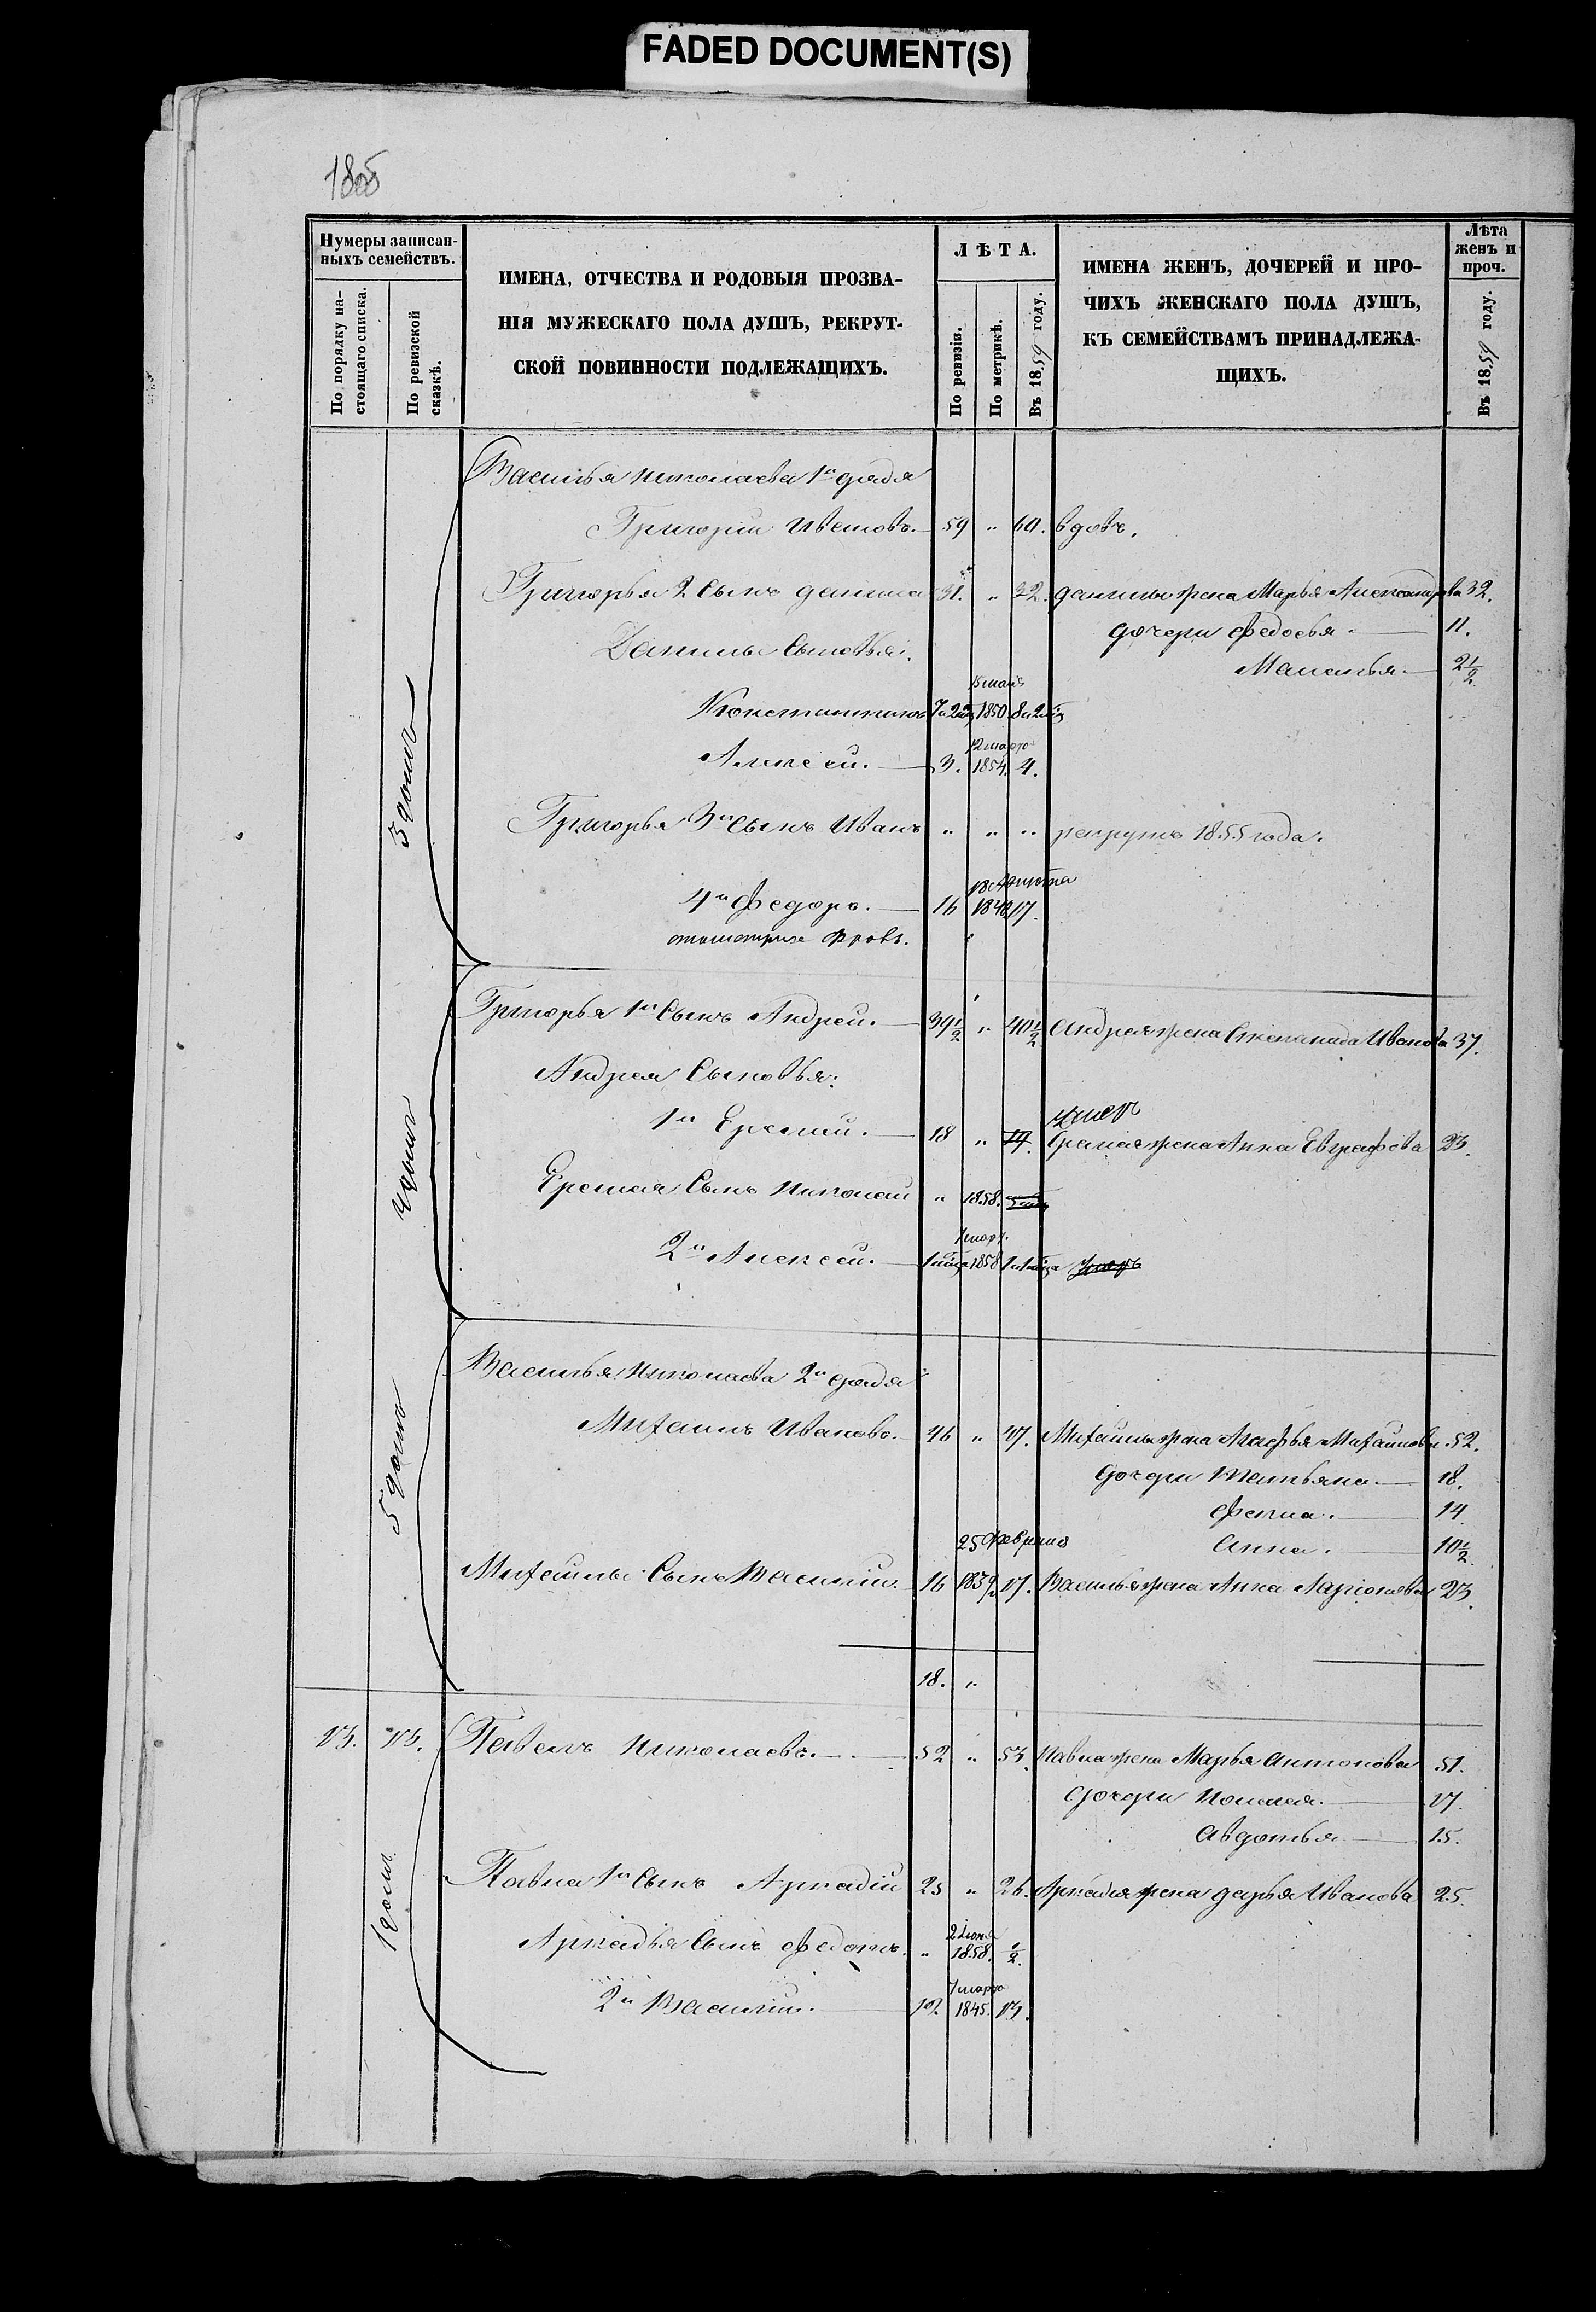 FADED DOCUMENT(S)
Нумеры записан-
ныхъ семействъ.
По порядку на-
стоящаго списка.
По ревизской
сказкѣ.
ИМЕНА, ОТЧЕСТВА И РОДОВЫЯ ПРОЗВА-
НІЯ МУЖЕСКАГО ПОЛА ДУШЪ, РЕКРУТ-
СКОЙ ПОВИННОСТИ ПОДЛЕЖАЩИХЪ.
ЛѢТА.
По ревизіи.
По метрикѣ.
Въ 1859 году.
ИМЕНА ЖЕНЪ, ДОЧЕРЕЙ И ПРО-
ЧИХЪ ЖЕНСКАГО ПОЛА ДУШЪ,
КЪ СЕМЕЙСТВАМЪ ПРИНАДЛЕЖА-
ЩИХЪ.
Лѣта
женъ и
проч.
Въ 1859 году.
Василья Николаева 1й дядя
Григорій Ивановъ. 59 " 60. вдовъ.
Григорья 2 сынъ Данила 31. " 32. Данилы жена Марья Александрова 32.
дочери Федосья. 11.
Данилы сыновья:
Маланья 2 1/2
15 мая
Константинъ 7 и 2 мѣс 1850 8 и 2 мѣс
12 марта
Алексей. 3. 1854. 4.
3 домъ
Григорья 3й сынъ Иванъ " " " рекрутъ 1855 года.
18 Августа
4й Федоръ. 16 1840 17.
Григорья 1й сынъ Андрей. 39 1/2 " 40 1/2 Андрея жена Степанида Иванова 37.
Андрея сыновья:
умеръ
1й Еремей. 18 " 19. Еремея жена Анна Евграфова 23.
4 домъ
Еремея сынъ Николай " 1858.
7 март.
2й Алексей. 1 мѣс 1858 1 и 1 мѣс умеръ
Василья Николаева 2й дядя
Михаилъ Ивановъ. 46 " 47. Михаилы жена Агафья Михаилова 52.
дочери Татьяна 18.
Фекла. 14
5 домъ
25 Февраля
Анна. 10 1/2
Михаилы сынъ Василій. 16 1839 17. Василья жена Анна Ларіонова 23.
18. "
13. 13. Павелъ Николаевъ. 52 " 53. Павла жена Марья Антонова 51.
дочери Пелагея. 17.
Авдотья 15.
Павла 1й сынъ Аркадій 25 " 26. Аркадья жена Дарья Иванова 25.
1 домъ.
2 Іюня
Аркадья сынъ Федотъ. " 1858. 1/2.
7 марта
2й Василій. 12 1845. 13.